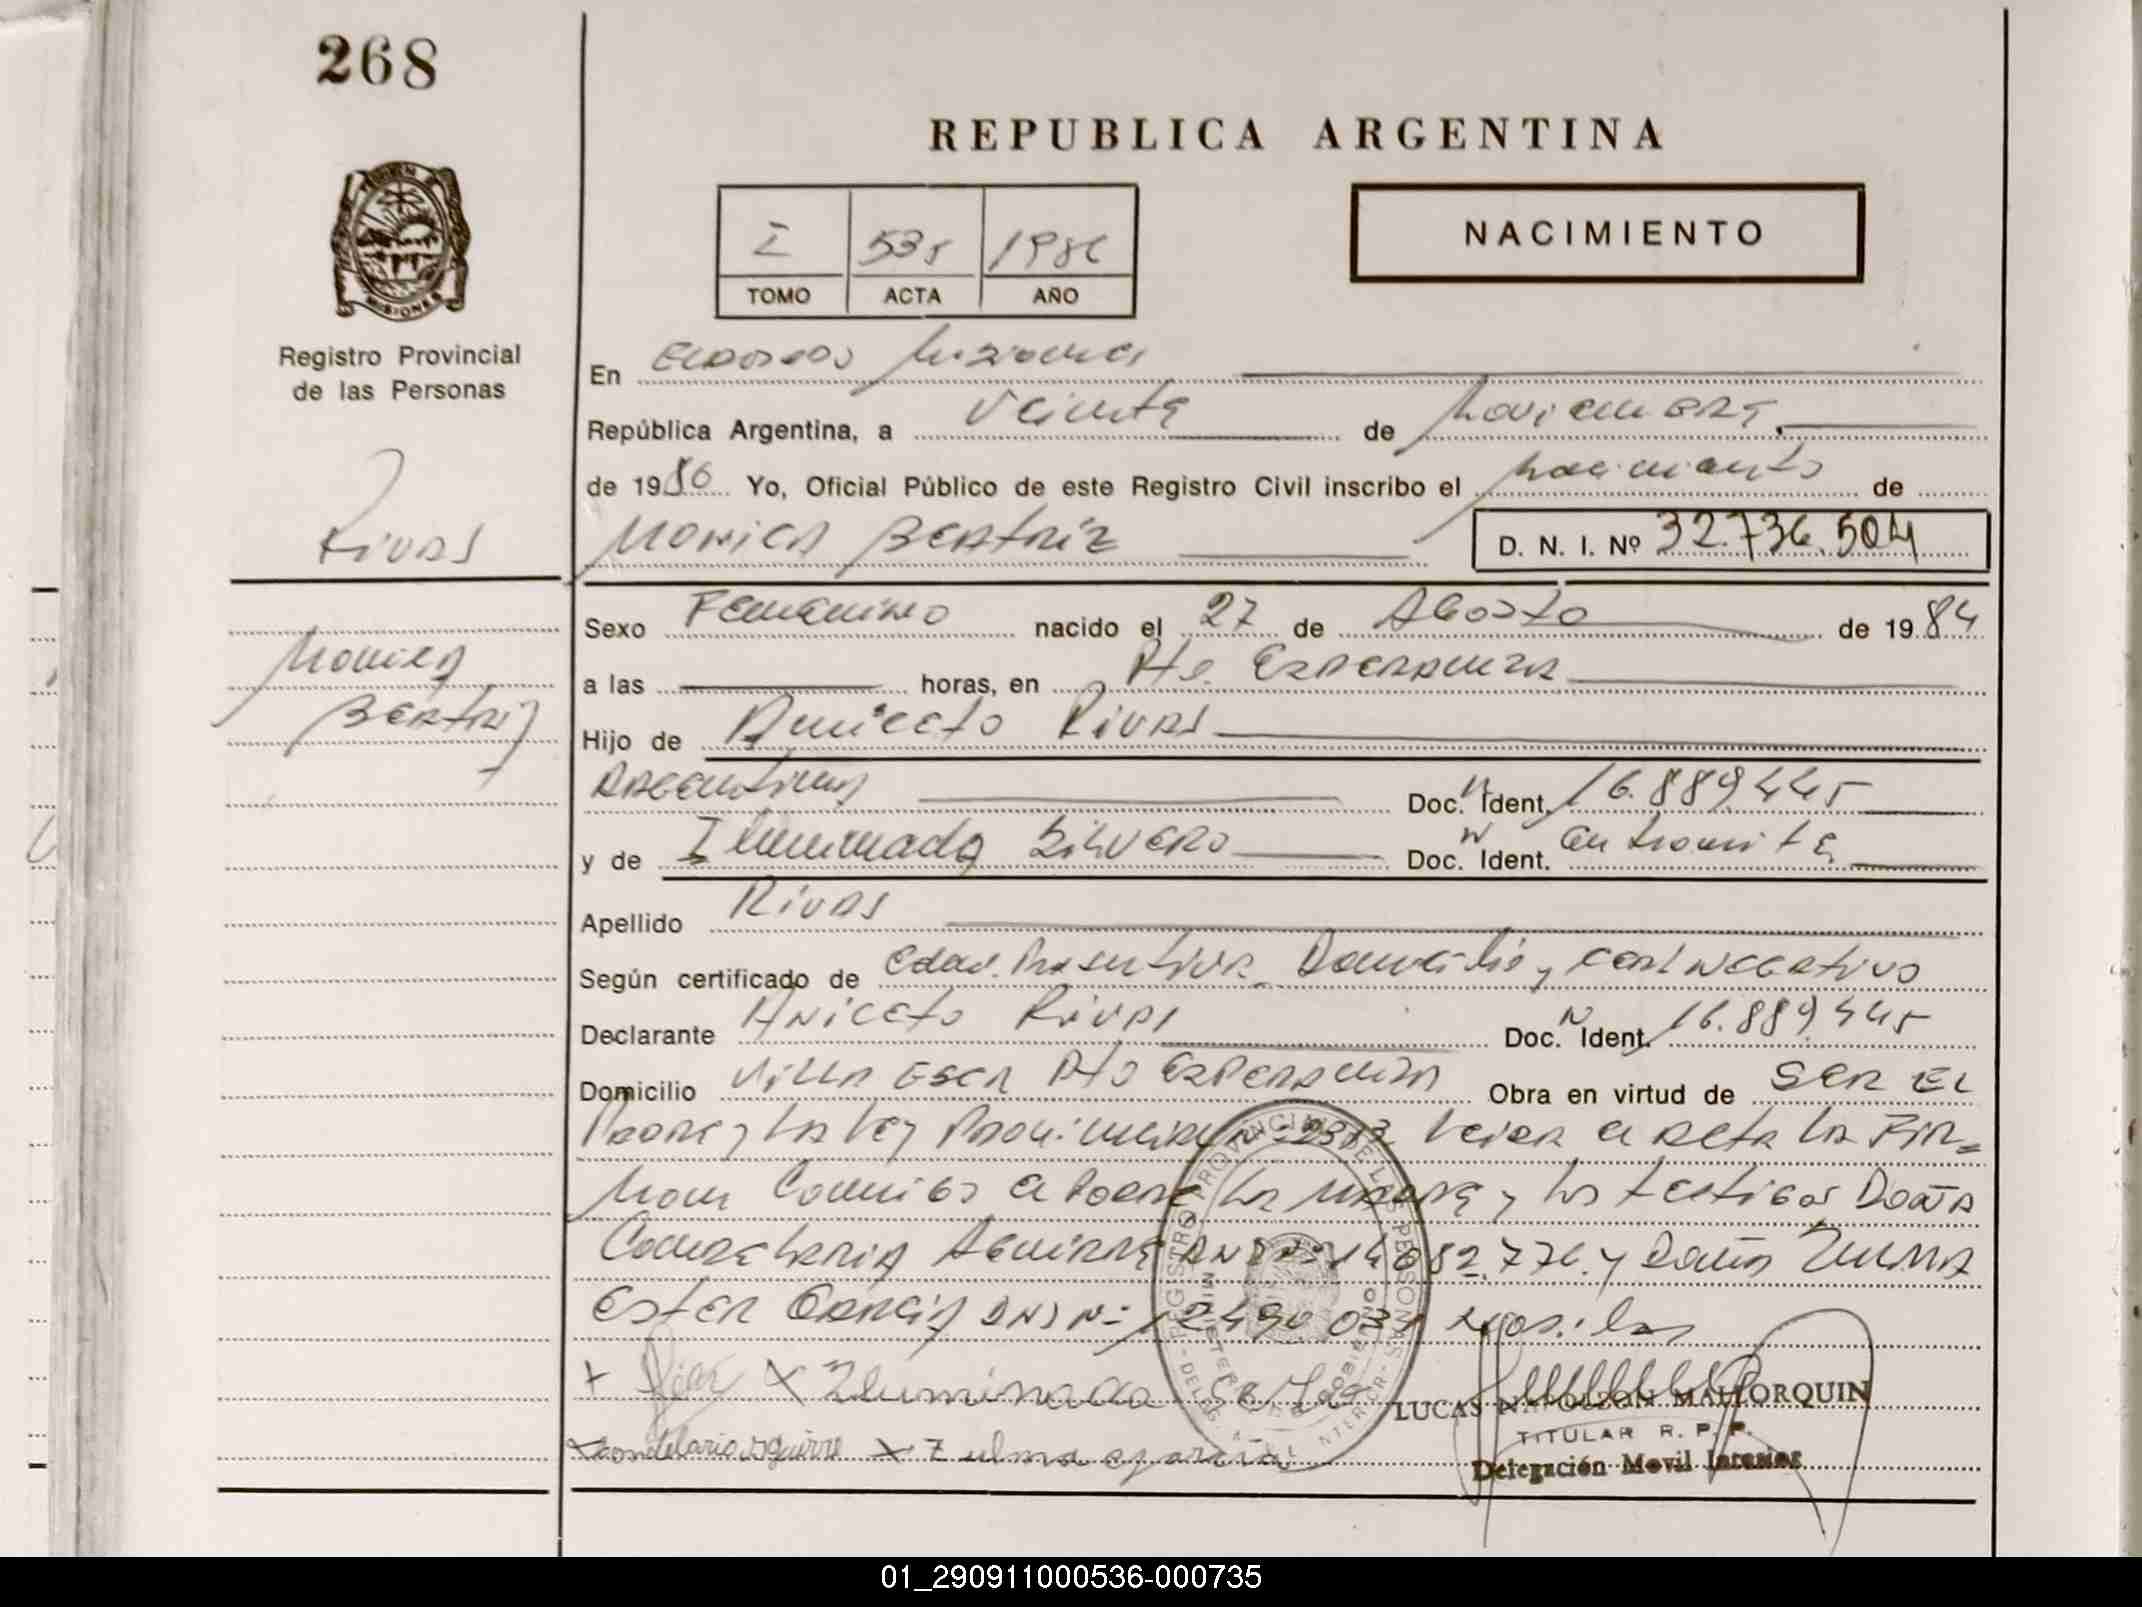 268
REPUBLICA ARGENTINA
MISIONES
I 535 1986
TOMO ACTA AÑO
NACIMIENTO
Registro Provincial
de las Personas
En Eldorado Misiones
República Argentina, a Veinte de Noviembre
de 1986 Yo, Oficial Público de este Registro Civil inscribo el nacimiento de
Rivas
Monica Beatriz
D. N. I. Nº 32.736.504
Sexo Femenino nacido el 27 de Agosto de 1984
Monica
Beatriz
a las horas, en Pto. Esperanza
Hijo de Aniceto Rivas
Argentina Doc. N Ident. 16.889.445
y de Iluminada Silvero Doc. N Ident. en tramite
Apellido Rivas
Según certificado de Edad Presuntiva, Domicilio y cert negativo
Declarante Aniceto Rivas Doc. N Ident. 16.889.445
Domicilio Villa Pto Esperanza Obra en virtud de SER EL
Padre y la Ley la Fir=
man Conmigo el Padre la Madre y los testigos Doña
Candelaria Aguirre DNI Nº 14.082.776 y Doña Zulma
Ester Garcia DNI Nº
x Rivas x Iluminada
LUCAS NAPOLEON MALLORQUIN
TITULAR R. P. P.
Delegación Movil Interior
x Candelaria aguirre x Zulma garcia
REGISTRO PROVINCIAL DE LAS PERSONAS
MINISTERIO DE GOBIERNO
01_290911000536-000735